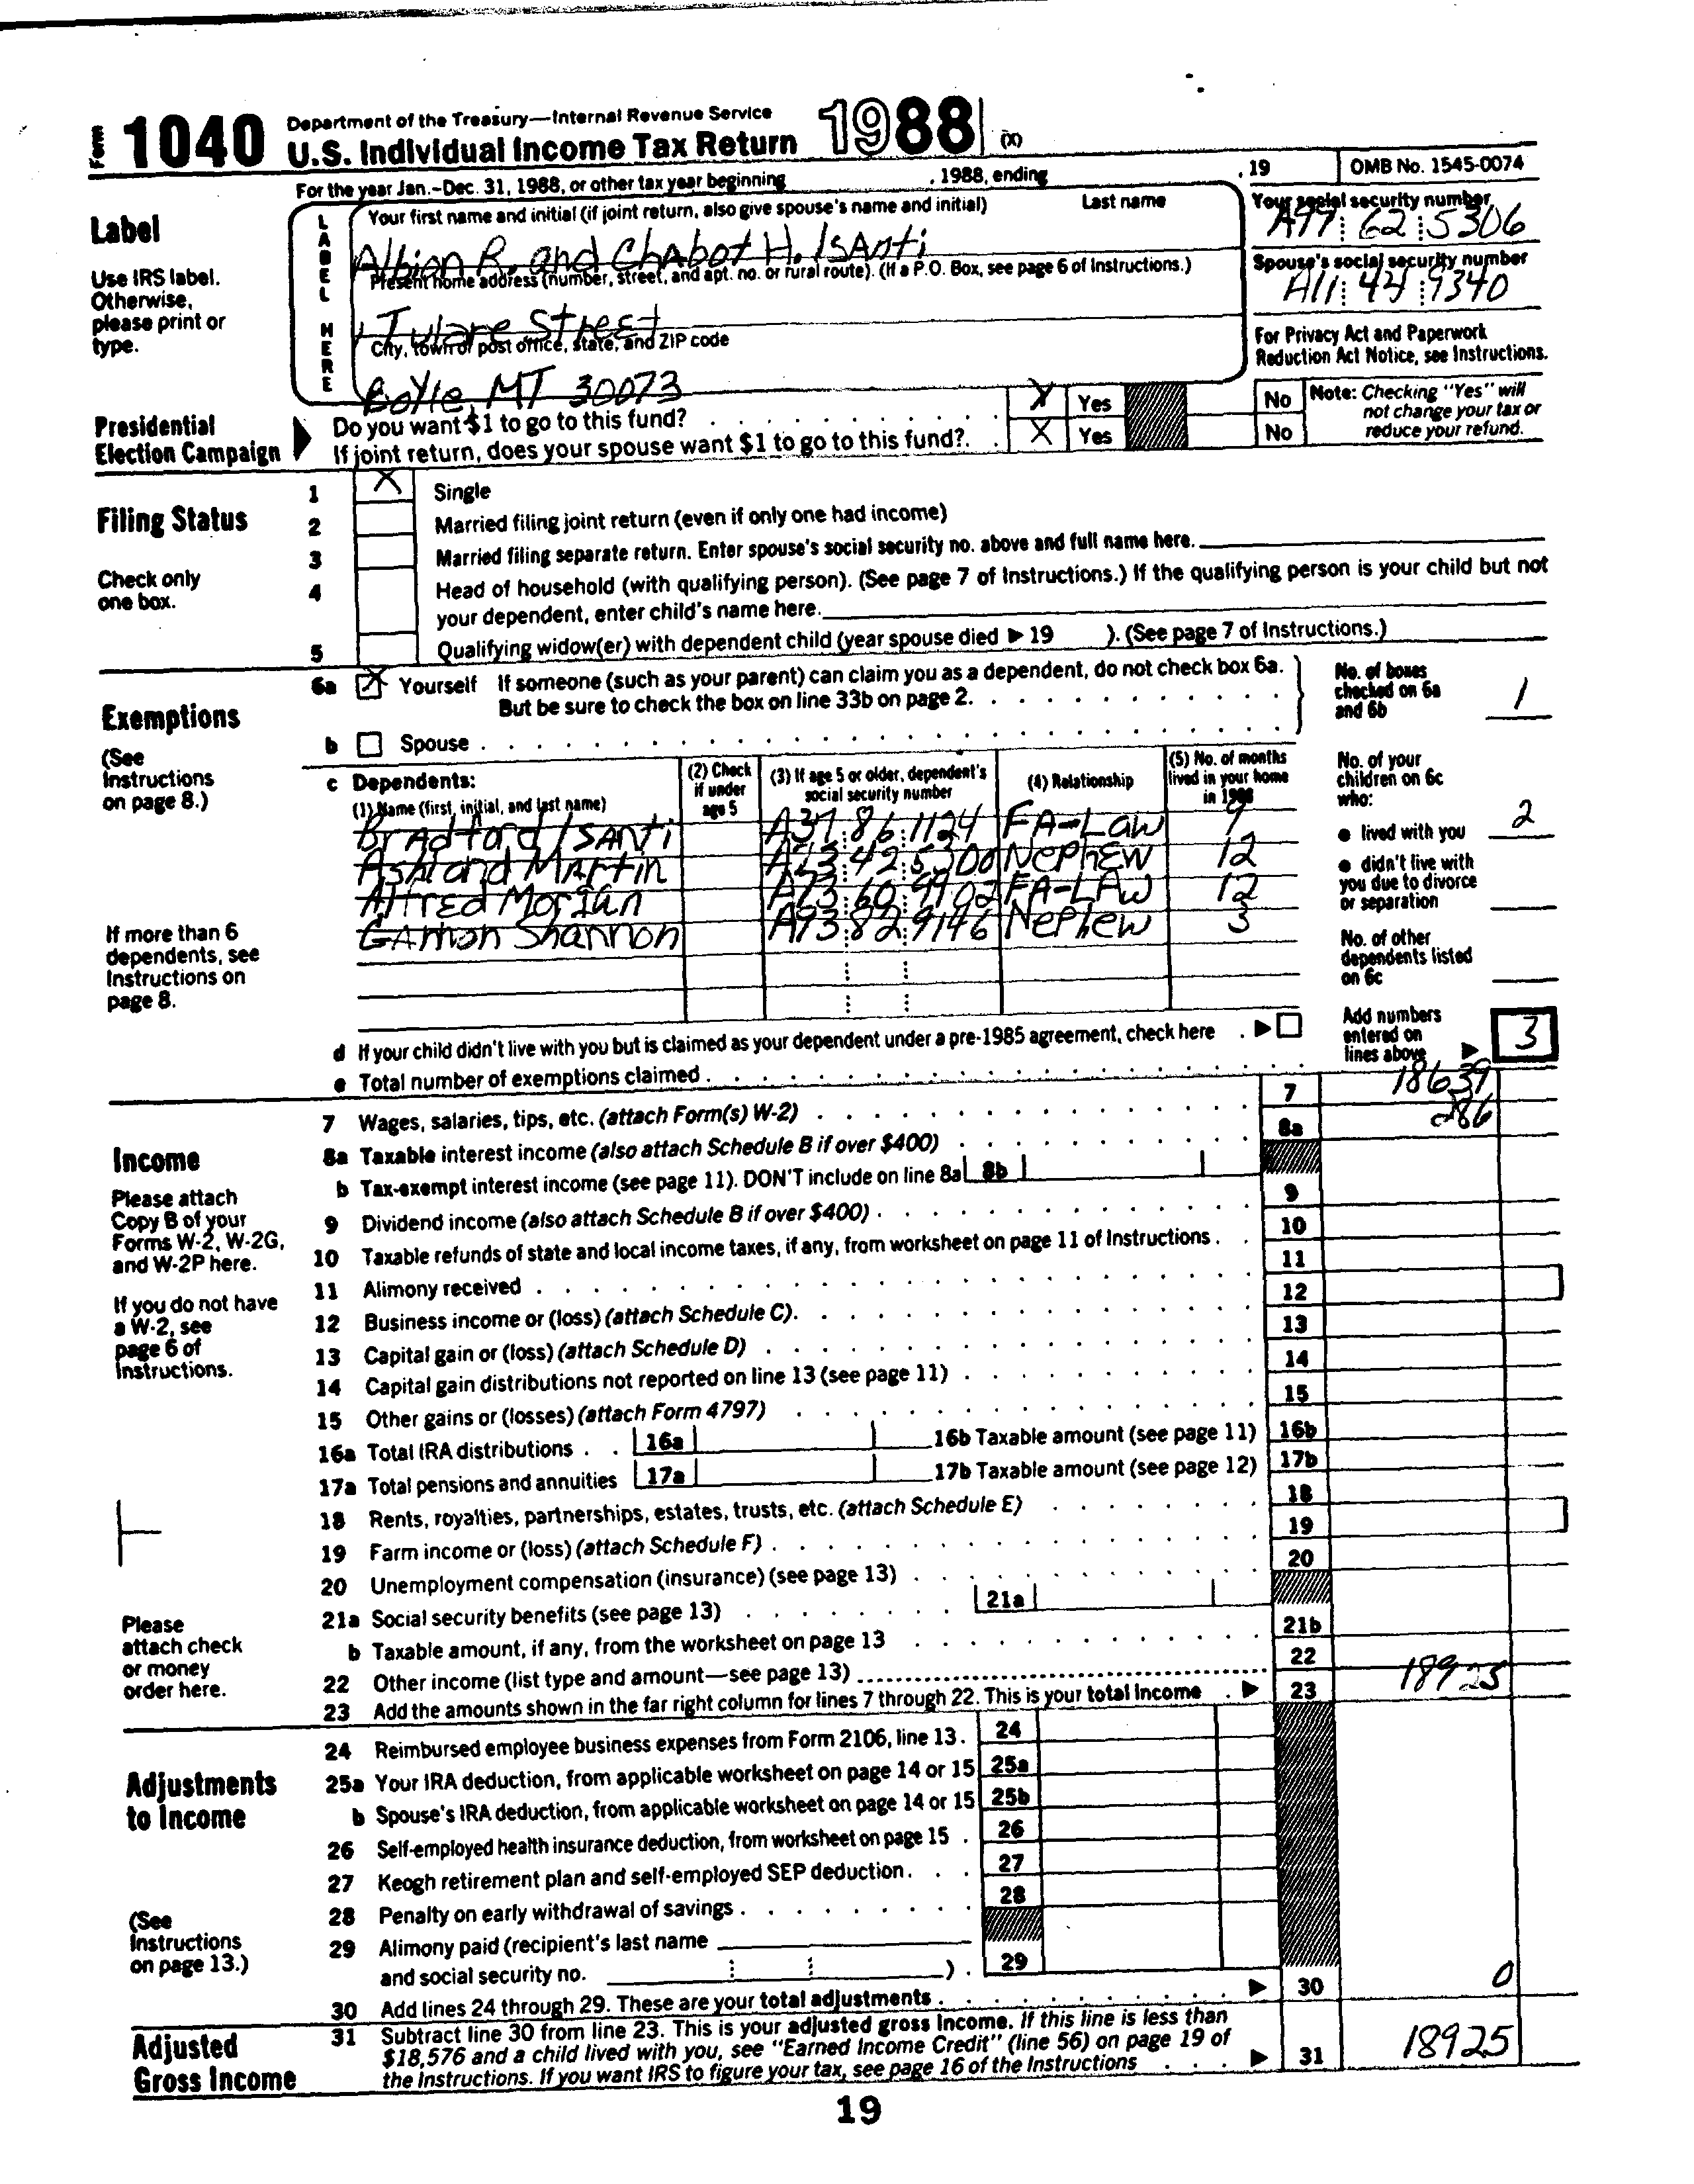 Form 1040 Department of the Treasury—Internal Revenue Service
U.S. Individual Income Tax Return 1988 (X)
For the year Jan.–Dec. 31, 1988, or other tax year beginning , 1988, ending , 19 OMB No. 1545-0074
Label
Use IRS label. Otherwise, please print or type.
LABEL HERE
Your first name and initial (if joint return, also give spouse's name and initial) Last name
Albion R. and Chabot H. Isanti
Your social security number
A97 62 5306
Present home address (number, street, and apt. no. or rural route). (If a P.O. Box, see page 6 of Instructions.)
1 Tulare Street
Spouse's social security number
A11 44 9340
City, town or post office, state, and ZIP code
Boyle, MT 30073
For Privacy Act and Paperwork Reduction Act Notice, see Instructions.
Presidential Election Campaign
Do you want $1 to go to this fund? X Yes No
If joint return, does your spouse want $1 to go to this fund? X Yes No
Note: Checking "Yes" will not change your tax or reduce your refund.
Filing Status
Check only one box.
1 X Single
2 Married filing joint return (even if only one had income)
3 Married filing separate return. Enter spouse's social security no. above and full name here.
4 Head of household (with qualifying person). (See page 7 of Instructions.) If the qualifying person is your child but not
your dependent, enter child's name here.
5 Qualifying widow(er) with dependent child (year spouse died ▶ 19 ). (See page 7 of Instructions.)
Exemptions
(See Instructions on page 8.)
6a X Yourself If someone (such as your parent) can claim you as a dependent, do not check box 6a.
But be sure to check the box on line 33b on page 2.
b Spouse
No. of boxes checked on 6a and 6b 1
c Dependents:
(1) Name (first, initial, and last name) (2) Check if under age 5 (3) If age 5 or older, dependent's social security number (4) Relationship (5) No. of months lived in your home in 1988
Bradford Isanti A37 86 1124 FA-Law 9
Ashland Martin 42 5300 Nephew 12
Alfred Morgan A73 60 9902 FA-LAw 12
GAmon Shannon A93 82 9146 Nephew 3
No. of your children on 6c who:
● lived with you 2
● didn't live with you due to divorce or separation
No. of other dependents listed on 6c
If more than 6 dependents, see Instructions on page 8.
d If your child didn't live with you but is claimed as your dependent under a pre-1985 agreement, check here ▶
e Total number of exemptions claimed
Add numbers entered on lines above ▶ 3
Income
Please attach Copy B of your Forms W-2, W-2G, and W-2P here.
If you do not have a W-2, see page 6 of Instructions.
Please attach check or money order here.
7 Wages, salaries, tips, etc. (attach Form(s) W-2) 7 18639
8a Taxable interest income (also attach Schedule B if over $400) 8a 286
b Tax-exempt interest income (see page 11). DON'T include on line 8a 8b
9 Dividend income (also attach Schedule B if over $400) 9
10 Taxable refunds of state and local income taxes, if any, from worksheet on page 11 of Instructions 10
11 Alimony received 11
12 Business income or (loss) (attach Schedule C) 12
13 Capital gain or (loss) (attach Schedule D) 13
14 Capital gain distributions not reported on line 13 (see page 11) 14
15 Other gains or (losses) (attach Form 4797) 15
16a Total IRA distributions 16a 16b Taxable amount (see page 11) 16b
17a Total pensions and annuities 17a 17b Taxable amount (see page 12) 17b
18 Rents, royalties, partnerships, estates, trusts, etc. (attach Schedule E) 18
19 Farm income or (loss) (attach Schedule F) 19
20 Unemployment compensation (insurance) (see page 13) 20
21a Social security benefits (see page 13) 21a
b Taxable amount, if any, from the worksheet on page 13 21b
22 Other income (list type and amount—see page 13) 22
23 Add the amounts shown in the far right column for lines 7 through 22. This is your total income ▶ 23 18925
Adjustments to Income
(See Instructions on page 13.)
24 Reimbursed employee business expenses from Form 2106, line 13. 24
25a Your IRA deduction, from applicable worksheet on page 14 or 15 25a
b Spouse's IRA deduction, from applicable worksheet on page 14 or 15 25b
26 Self-employed health insurance deduction, from worksheet on page 15 26
27 Keogh retirement plan and self-employed SEP deduction 27
28 Penalty on early withdrawal of savings 28
29 Alimony paid (recipient's last name
and social security no. ) 29
30 Add lines 24 through 29. These are your total adjustments ▶ 30 0
Adjusted Gross Income
31 Subtract line 30 from line 23. This is your adjusted gross income. If this line is less than
$18,576 and a child lived with you, see "Earned Income Credit" (line 56) on page 19 of
the Instructions. If you want IRS to figure your tax, see page 16 of the Instructions ▶ 31 18925
19